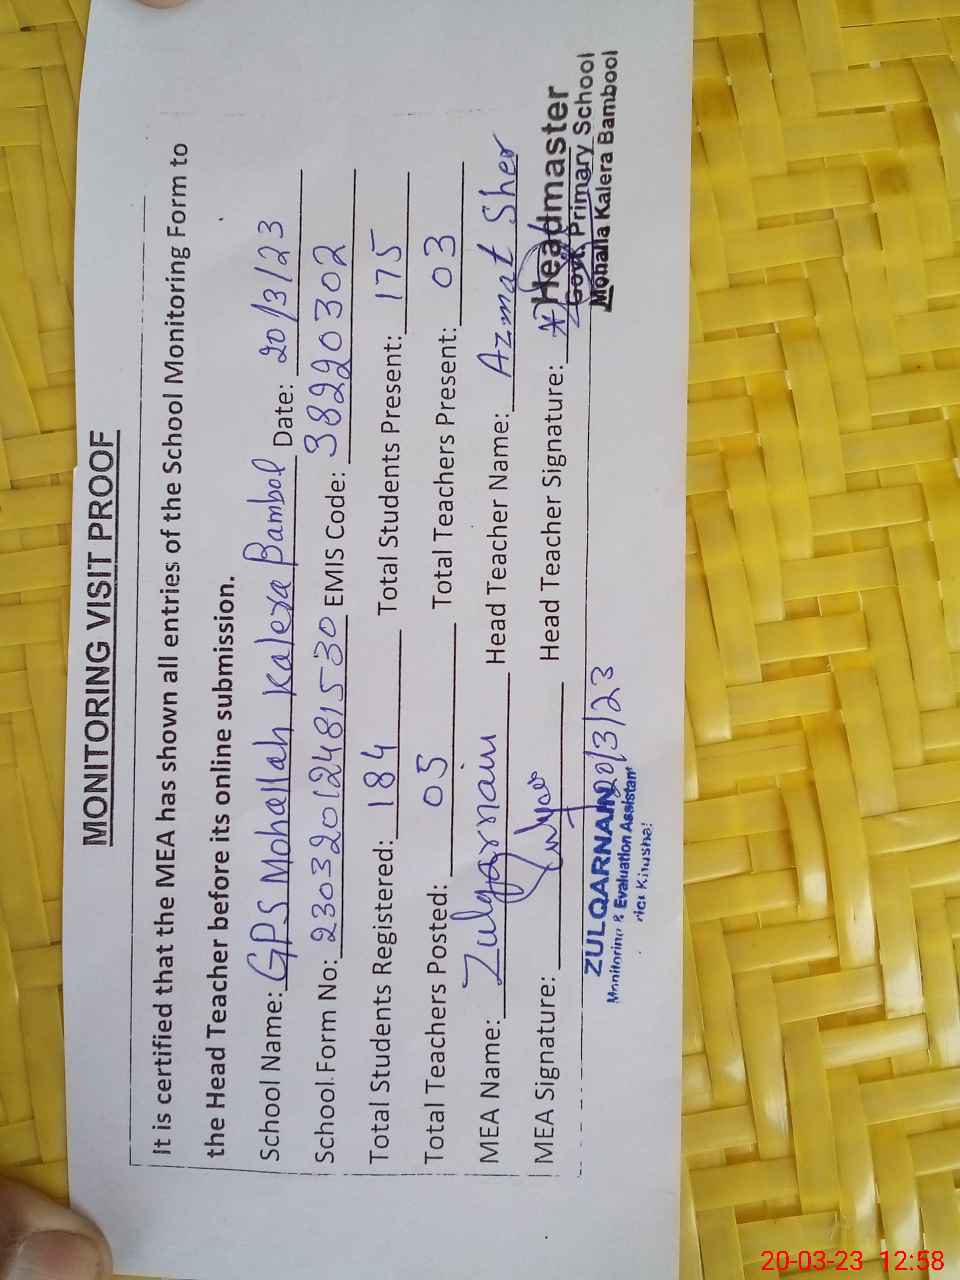 MONITORING VISIT PROOF
It is certified that the MEA has shown all entries of the School Monitoring Form to
the Head Teacher before its online submission.
School Name: GPS Mohallah Kalera Bambol Date: 20/3/23
School Form No: 23032012481530 EMIS Code: 38220302
Total Students Registered: 184 Total Students Present: 175
Total Teachers Posted: 05 Total Teachers Present: 03
MEA Name: Zulqarnain Head Teacher Name: Azmat Sher
MEA Signature: Head Teacher Signature:
Headmaster
Govt. Primary School
Mohalla Kalera Bambool
ZULQARNAIN 20/3/23
Monitoring & Evaluation Assistant
20-03-23 12:58